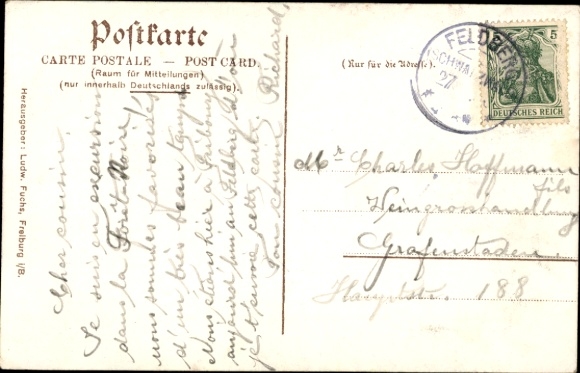 Postkarte
CARTE POSTALE — POST CARD.
(Raum für Mitteilungen)
(nur innerhalb Deutschlands zulässig).
(Nur für die Adresse).
Herausgeber: Ludw. Fuchs, Freiburg i/B.
FELDBERG
(SCHWARZW
27
5
DEUTSCHES REICH
Cher cousin.
Je suis en excursion
dans la Forêt-Noire!
nous sommes favorisés
d'un très beau temps
Nous étions hier à Fribourg
aujourd'hui au Feldberg d'où
je t'envoie cette carte.
Ton cousin Richard.
Mr Charles Hoffmann
fils
Weingrosshandlung
Grafenstaden.
Hauptstr. 188